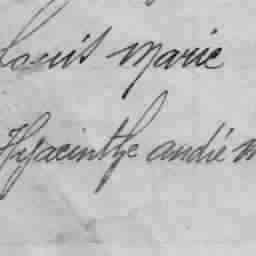 Louis Marie
Hyacinthe andré